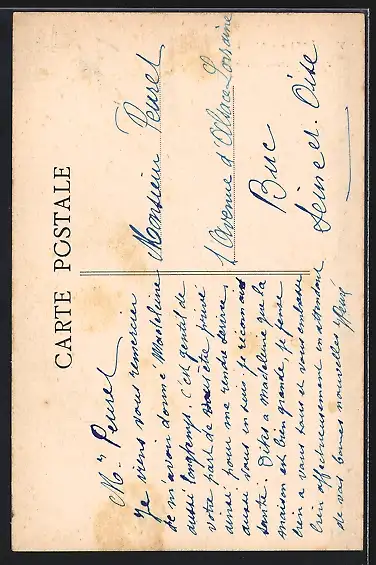 CARTE POSTALE
Mr Peuret
Je viens vous remercier
de m'avoir donné Madeleine
aussi longtemps. C'est gentil de
votre part de vous être privé
ainsi pour me rendre service,
aussi vous en suis je reconnais
sante. Dites a Madeleine que la
maison est bien grande, je pense
bien a vous tous et vous embrasse
bien affectueusement en attendant
de vos bonnes nouvelles
Monsieur Peuret
1 Avenue d'Alsace-Lorraine
Buc
Seine et Oise